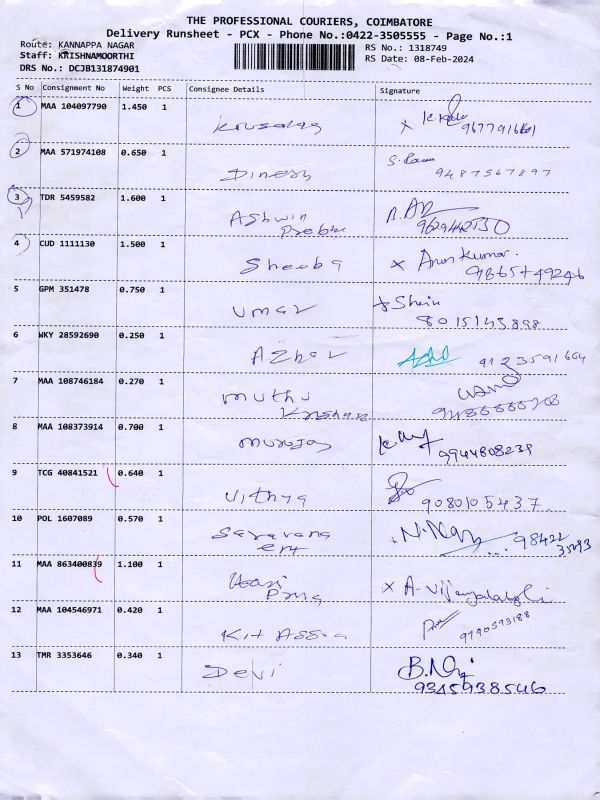 THE PROFESSIONAL COURIERS, COIMBATORE
Delivery Runsheet - PCX - Phone No.:0422-3505555 - Page No.:1
Route: KANNAPPA NAGAR
RS No.: 1318749
Staff: KRISHNAMOORTHI
RS Date: 08-Feb-2024
DRS No.: DCJB131874901
S No Consignment No Weight PCS Consignee Details Signature
1 MAA 104097790 1.450 1
2 MAA 571974108 0.650 1 S.
Dinesh 9487567897
3 TDR 5459582 1.600 1
Ashwin
Prabhu
4 CUD 1111130 1.500 1
Sheeba x Arun Kumar
5 GPM 351478 0.750 1
Umar 8015143898
6 WKY 28592690 0.250 1
Azhar 9123591664
7 MAA 108746184 0.270 1
Muthu
Krishna
8 MAA 108373914 0.700 1
Murugan 9944808239
9 TCG 40841521 0.640 1
Vithya 9080105437
10 POL 1607089 0.570 1
Saravana
11 MAA 863400839 1.100 1
Hari x A. Vijayalakshmi
12 MAA 104546971 0.420 1
9790593188
13 TMR 3353646 0.340 1
Devi
9345938546